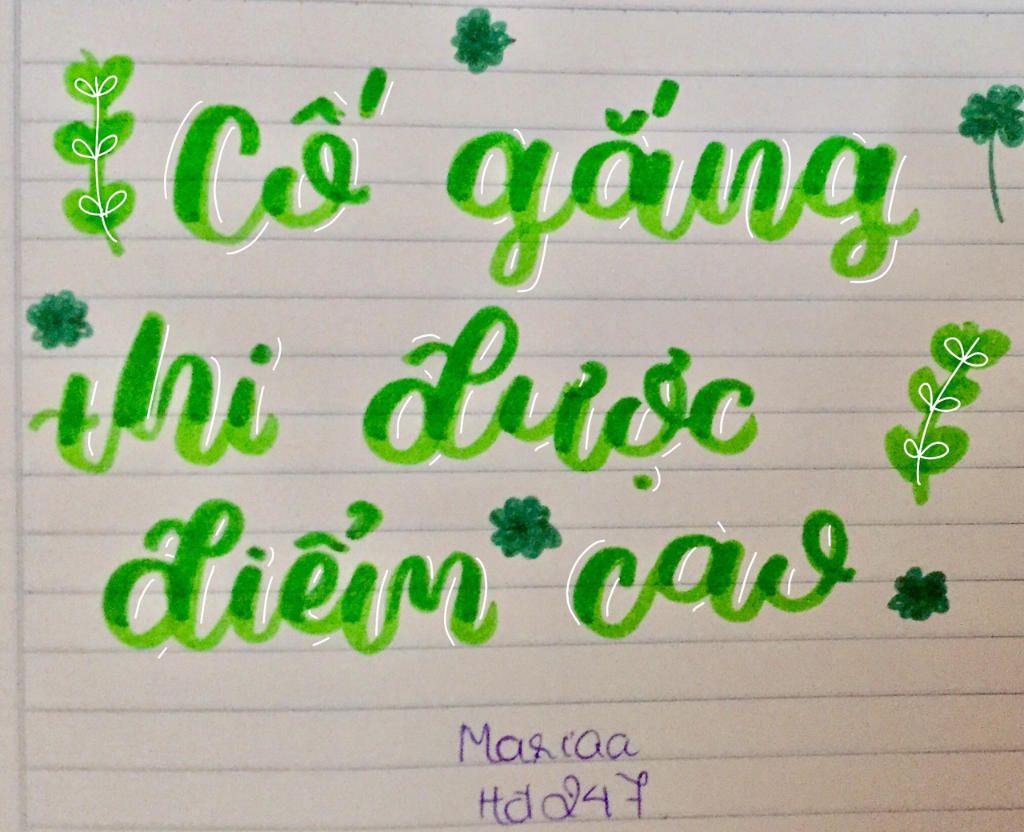 Cố gắng
thi được
điểm cao
Mariaa
Hd247